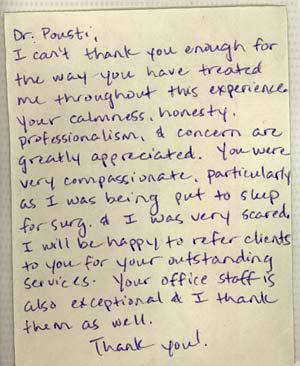 Dr. Pousti,
I can't thank you enough for
the way you have treated
me throughout this experience.
Your calmness, honesty,
professionalism, & concern are
greatly appreciated. You were
very compassionate, particularly
as I was being put to sleep
for surg. & I was very scared.
I will be happy to refer clients
to you for your outstanding
services. Your office staff is
also exceptional & I thank
them as well.
Thank you!